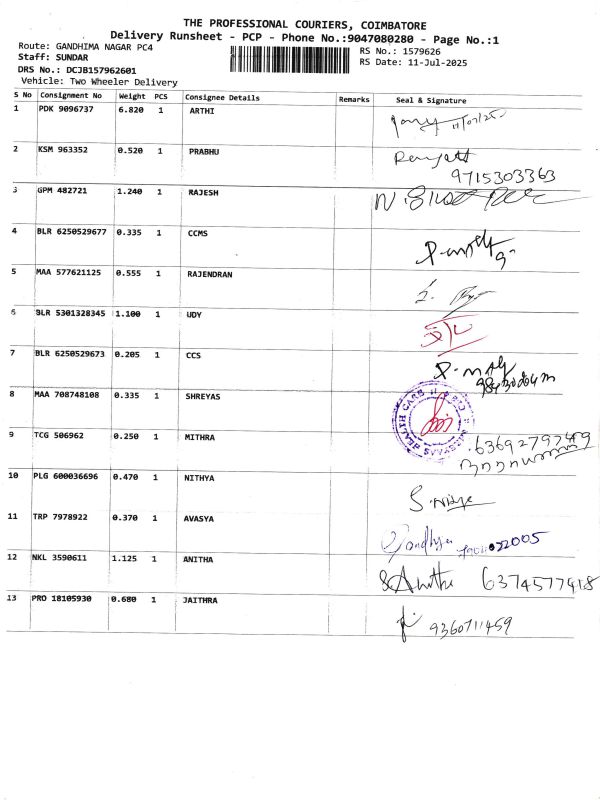 THE PROFESSIONAL COURIERS, COIMBATORE
Delivery Runsheet - PCP - Phone No.:9047080280 - Page No.:1
Route: GANDHIMA NAGAR PC4
RS No.: 1579626
Staff: SUNDAR
RS Date: 11-Jul-2025
DRS No.: DCJB157962601
Vehicle: Two Wheeler Delivery
S No Consignment No Weight PCS Consignee Details Remarks Seal & Signature
1 PDK 9096737 6.820 1 ARTHI 11/07/25
2 KSM 963352 0.520 1 PRABHU
9715303363
3 GPM 482721 1.240 1 RAJESH
4 BLR 6250529677 0.335 1 CCMS
5 MAA 577621125 0.555 1 RAJENDRAN
6 BLR 5301328345 1.100 1 UDY
7 BLR 6250529673 0.205 1 CCS
8 MAA 708748108 0.335 1 SHREYAS
HEALTH CARE
9 TCG 506962 0.250 1 MITHRA
10 PLG 600036696 0.470 1 NITHYA
11 TRP 7978922 0.370 1 AVASYA
12 NKL 3590611 1.125 1 ANITHA
Anitha 6374577418
13 PRO 18105930 0.680 1 JAITHRA
9360711459